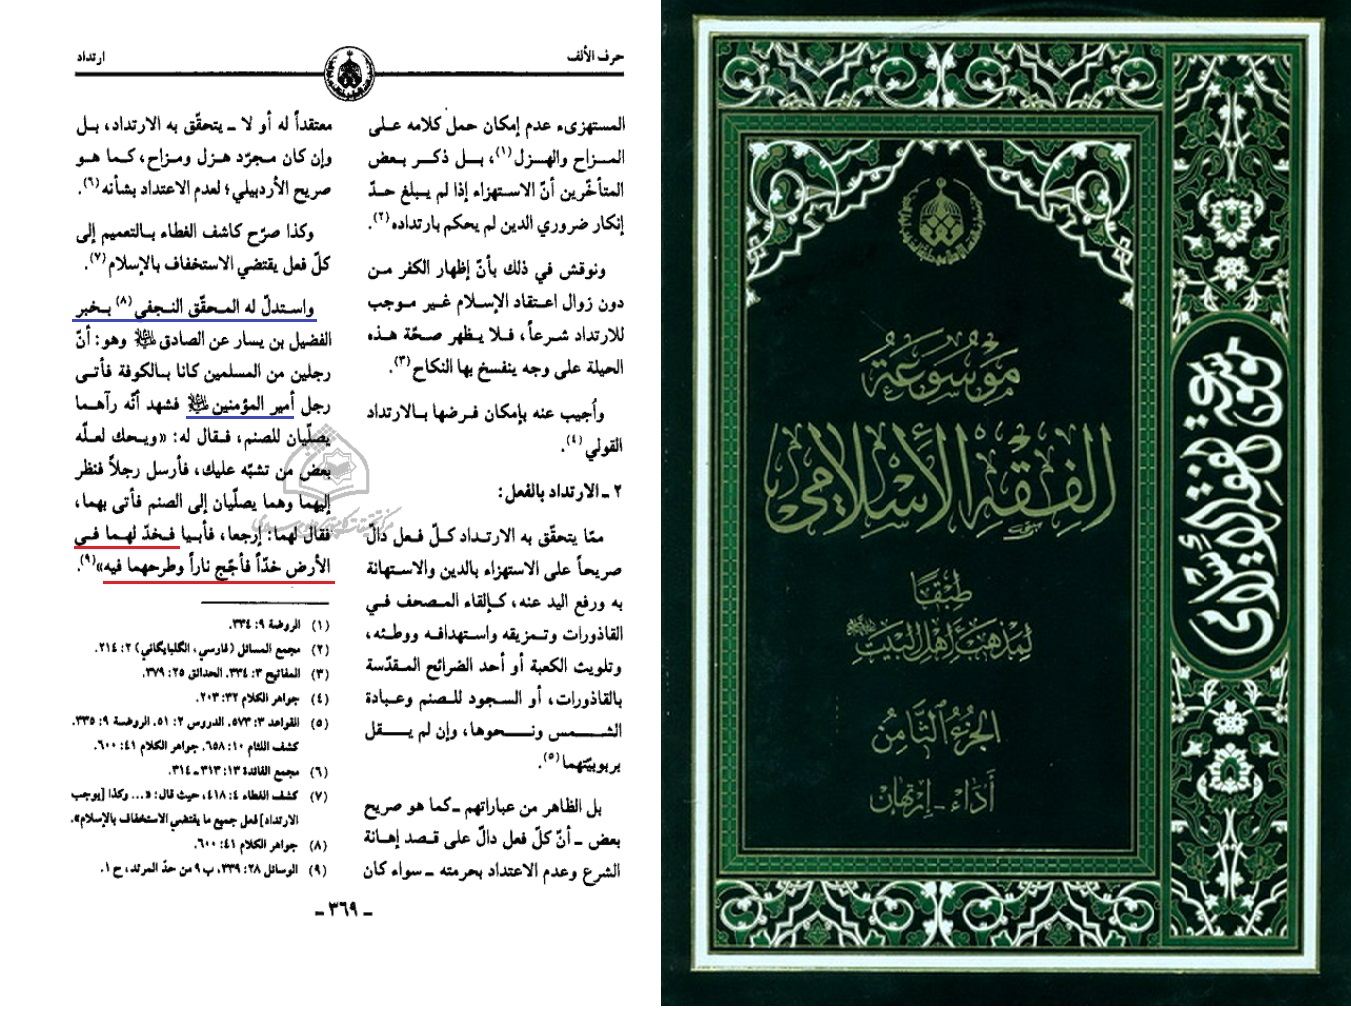 حرف الألف
ارتداد
المستهزىء عدم إمكان حمل كلامه على
المزاح والهزل(١)، بل ذكر بعض
المتأخّرين أنّ الاستهزاء إذا لم يبلغ حدّ
إنكار ضروري الدين لم يحكم بارتداده(٢).
ونوقش في ذلك بأنّ إظهار الكفر من
دون زوال اعتقاد الإسلام غير موجب
للارتداد شرعاً، فلا يظهر صحّة هذه
الحيلة على وجه ينفسخ بها النكاح(٣).
وأُجيب عنه بإمكان فرضها بالارتداد
القولي(٤).
٢ ـ الارتداد بالفعل:
ممّا يتحقّق به الارتداد كلّ فعل دالّ
صريحاً على الاستهزاء بالدين والاستهانة
به ورفع اليد عنه، كإلقاء المصحف في
القاذورات وتمزيقه واستهدافه ووطئه،
وتلويث الكعبة أو أحد الضرائح المقدّسة
بالقاذورات، أو السجود للصنم وعبادة
الشمس ونحوها، وإن لم يقل
بربوبيّتهما(٥).
بل الظاهر من عباراتهم ـ كما هو صريح
بعض ـ أنّ كلّ فعل دالّ على قصد إهانة
الشرع وعدم الاعتداد بحرمته ـ سواء كان
معتقداً له أو لا ـ يتحقّق به الارتداد، بل
وإن كان مجرّد هزل ومزاح، كما هو
صريح الأردبيلي؛ لعدم الاعتداد بشأنه(٦).
وكذا صرّح كاشف الغطاء بالتعميم إلى
كلّ فعل يقتضي الاستخفاف بالإسلام(٧).
واستدلّ له المحقّق النجفي(٨) بخبر
الفضيل بن يسار عن الصادق عليه السلام وهو: أنّ
رجلين من المسلمين كانا بالكوفة فأتى
رجل أمير المؤمنين عليه السلام فشهد أنّه رآهما
يصلّيان للصنم، فقال له: «ويحك لعلّه
بعض من تشبّه عليك، فأرسل رجلاً فنظر
إليهما وهما يصلّيان إلى الصنم فأتى بهما،
فقال لهما: إرجعا، فأبيا فخدّ لهما في
الأرض خدّاً فأجّج ناراً وطرحهما فيه»(٩).
(١) الروضة ٩: ٣٣٤.
(٢) مجمع المسائل (فارسي، الگلپايگاني) ٢: ٢١٤.
(٣) المفاتيح ٣: ٣٣٤. الحدائق ٢٥: ٣٧٩.
(٤) جواهر الكلام ٣٢: ٢٠٣.
(٥) القواعد ٣: ٥٧٣. الدروس ٢: ٥١. الروضة ٩: ٣٣٥.
كشف اللثام ١٠: ٦٥٨. جواهر الكلام ٤١: ٦٠٠.
(٦) مجمع الفائدة ١٣: ٣١٣ ـ ٣١٤.
(٧) كشف الغطاء ٤: ٤١٨، حيث قال: «... وكذا [يوجب
الارتداد] فعل جميع ما يقتضي الاستخفاف بالإسلام».
(٨) جواهر الكلام ٤١: ٦٠٠.
(٩) الوسائل ٢٨: ٣٣٩، ب ٩ من حدّ المرتد، ح ١.
ـ ٣٦٩ ـ
مَوْسُوعَةُ
الفِقْهِ الْإِسْلَامِي
طِبْقًا
لِمَذْهَبِ أَهْلِ البَيْتِ
الجُزْءُ الثَّامِنُ
أَدَاء - اِرْتِهَان
موسوعة الفقه الإسلامي